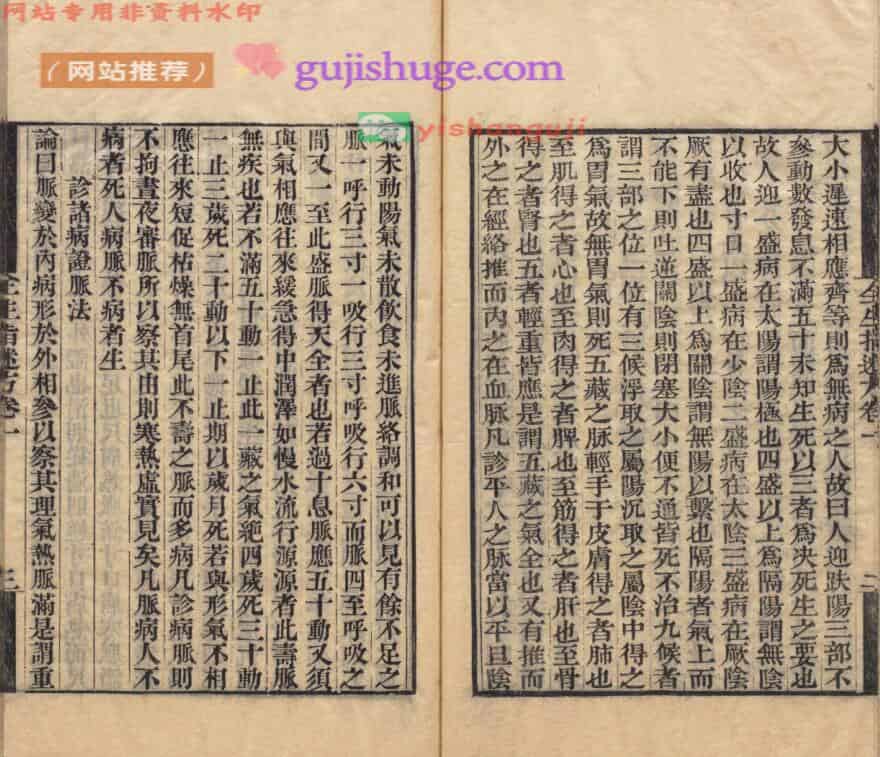 网站专用非资料水印
（网站推荐）
gujishuge.com
yishanguji
大小遲速相應齊等則爲無病之人故曰人迎趺陽三部不
參動數發息不滿五十未知生死以三者爲决死生之要也
故人迎一盛病在太陽謂陽極也四盛以上爲隔陽謂無陰
以收也寸口一盛病在少陰二盛病在太陰三盛病在厥陰
厥有盡也四盛以上爲關陰謂無陽以繫也隔陽者氣上而
不能下則吐逆關陰則閉塞大小便不通皆死不治九候者
謂三部之位一位有三候浮取之屬陽沉取之屬陰中得之
爲胃氣故無胃氣則死五藏之脉輕手于皮膚得之者肺也
至肌得之者心也至肉得之者脾也至筋得之者肝也至骨
得之者腎也五者輕重皆應是謂五藏之氣全也又有推而
外之在經絡推而内之在血脉凡診平人之脉當以平旦陰
全生指迷方卷一
二
氣未動陽氣未散飲食未進脈絡調和可以見有餘不足之
脈一呼行三寸一吸行三寸呼吸行六寸而脈四至呼吸之
間又一至此盛脈得天全者也若過十息脈應五十動又須
與氣相應往來緩急得中潤澤如慢水流行源源者此壽脈
無疾也若不滿五十動一止此一藏之氣絶四歲死三十動
一止三歲死二十動以下一止期以歲月死若與形氣不相
應往來短促枯燥無首尾此不壽之脈而多病凡診病脈則
不拘晝夜審脈所以察其由則寒熱虛實見矣凡脈病人不
病者死人病脈不病者生
診諸病證脈法
論曰脈變於内病形於外相參以察其理氣熱脈滿是謂重
全生指迷方卷一
三